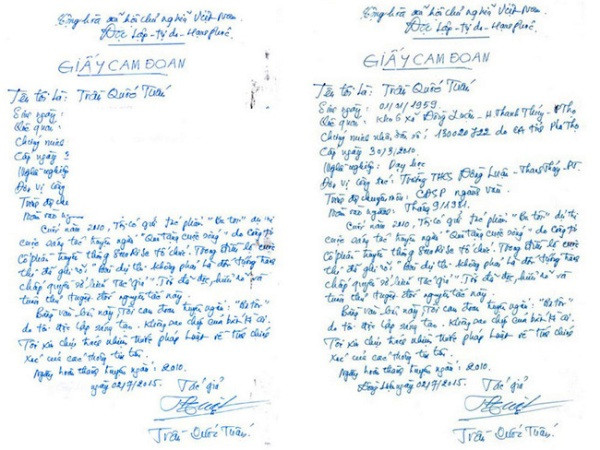 Cộng hòa xã hội chủ nghĩa Việt Nam
Độc Lập - Tự do - Hạnh Phúc.
GIẤY CAM ĐOAN
Tên tôi là: Trần Quốc Tuấn
Sinh ngày:
Quê quán:
Chứng minh
Cấp ngày 3
Nghề nghiệp:
Đơn vị công
Trình độ ch
Năm vào ng
Cuối năm 2010, Tôi có gửi tác phẩm "Bà tôi" dự thi
cuộc sáng tác truyện ngắn "Quà tặng cuộc sống" do Công ty
Cổ phần truyền thông tổ chức. Trong Điều lệ cuộc
thi đã ghi rõ "Bài dự thi không phải là đối tượng tranh
chấp quyền sở hữu Tác giả". Tôi đã đọc, hiểu rõ và
tuân thủ tuyệt đối nguyên tắc này.
Bằng văn bản này Tôi cam đoan truyện ngắn: "Bà tôi"
do tôi độc lập sáng tạo. Không sao chép của bất kì ai.
Tôi xin chịu trách nhiệm trước pháp luật về tính chính
xác của các thông tin trên.
Ngày hoàn thành truyện ngắn: 2010.
ngày 02/7/2015. Tác giả
Trần Quốc Tuấn.
Cộng hòa xã hội chủ nghĩa Việt Nam
Độc Lập - Tự do - Hạnh Phúc.
GIẤY CAM ĐOAN
Tên tôi là: Trần Quốc Tuấn
Sinh ngày: 01/01/1959
Quê quán: Khu 6 xã Đồng Luận - H Thanh Thủy - Thọ
Chứng minh nhân dân số: 130020722 do CA tỉnh Phú Thọ
Cấp ngày 30/3/2010.
Nghề nghiệp: Dạy học
Đơn vị công tác: Trường THCS Đồng Luận - Thanh Thủy - PT.
Trình độ chuyên môn: CĐSP ngành văn.
Năm vào ngành: Tháng 9/1981.
Cuối năm 2010, Tôi có gửi tác phẩm "Bà tôi" dự thi
cuộc sáng tác truyện ngắn "Quà tặng cuộc sống" do Công ty
Cổ phần truyền thông tổ chức. Trong Điều lệ cuộc
thi đã ghi rõ "Bài dự thi không phải là đối tượng tranh
chấp quyền sở hữu Tác giả". Tôi đã đọc, hiểu rõ và
tuân thủ tuyệt đối nguyên tắc này.
Bằng văn bản này Tôi cam đoan truyện ngắn: "Bà tôi"
do tôi độc lập sáng tạo. Không sao chép của bất kì ai.
Tôi xin chịu trách nhiệm trước pháp luật về tính chính
xác của các thông tin trên.
Ngày hoàn thành truyện ngắn: 2010.
Đồng Luận ngày 02/7/2015. Tác giả
Trần Quốc Tuấn.